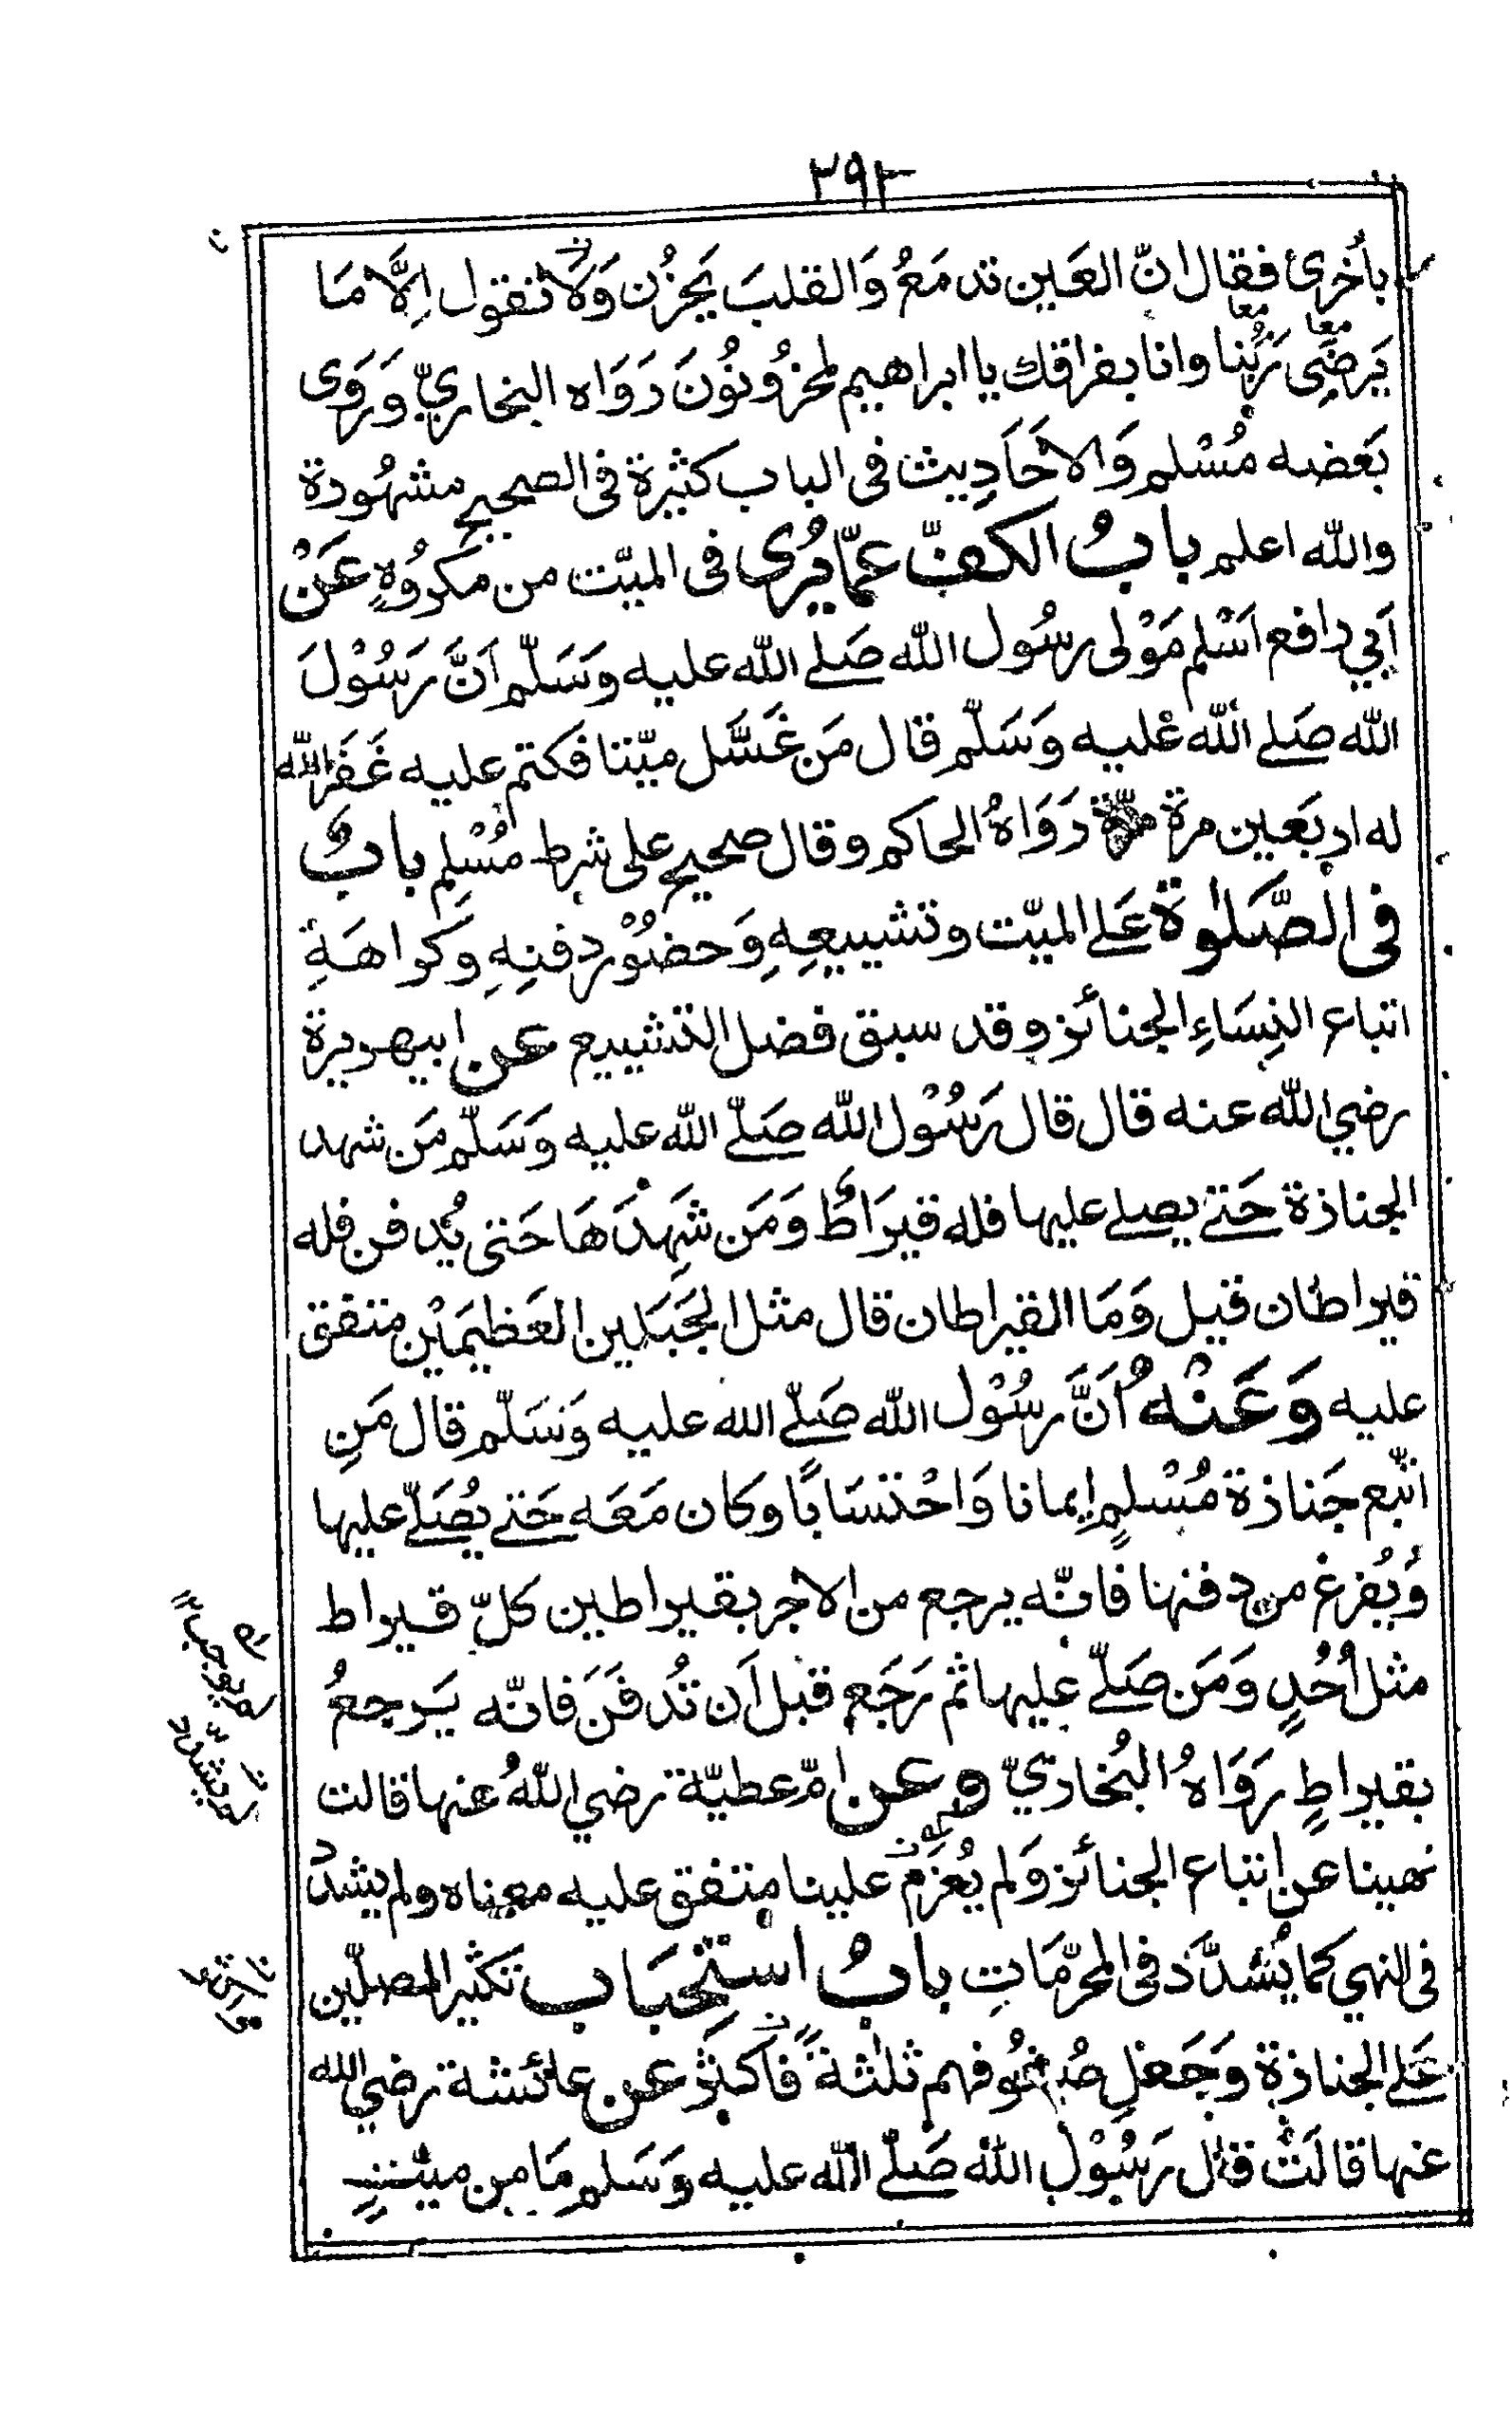 ٣٩٢
بأخرى فقال انّ العَين تدمَعُ وَالقلبَ يَحزُن وَلَا نقول اِلَّا مَا
يَرضَى رَبُّنا وانا بفراقك يا ابراهيم لمحزُونُونَ رَوَاه البخاريّ وَرَوى
بَعضه مُسْلم وَالاحَادِيث فى الباب كثيرة فى الصحيح مشهُورة
والله اعلم بابُ الكفّ عمّا يُرى فى الميّت من مكروُهٍ عَنْ
اَبي رافع اَسْلم مَوْلى رسُول الله صَلے الله عليه وَسَلّم اَنَّ رَسُوْلَ
الله صَلے الله عْليه وَسَلّم قال مَن غَسَّل ميّتا فكتم عليه غَفَر الله
له اربَعين مرة رَوَاهُ الحاكم وقال صحيح على شرط مُسْلِم بابٌ
فى الصَّلٰوة عَلے الميّت وتشييعِهِ وَحضُوْر دفنِهِ وَكراهَةِ
اتباع النِسَاءِ الجنائز وقد سبق فضل التشييع عن ابيهريرة
رضي الله عنه قال قال رَسُوْل الله صَلّے الله عليه وَسَلّم مَن شهد
الجنازة حَتے يصلے عليها فله قيرَاطٌ وَمَن شَهِدَهَا حَتى تُدفن فله
قيراطان قيل وَمَا القيراطان قال مثل الجَبَلين العَظيمَيْن متفق
عليه وَعَنْهُ اَنَّ رسُوْل الله صَلّے الله عليه وَسَلّم قال مَنِ
اتّبع جَنازة مُسْلمٍ اِيمانا وَاحْتسَابًا وكان مَعَه حَتے يُصَلّے عليها
وَيُفرغ من دفنها فانّه يرجع من الاجر بقيراطين كلّ قيراط
مثل اُحُدٍ وَمَن صَلّے عليها ثم رَجَع قبل اَن تُدفَنَ فانّه يَرجعُ
بقيراطٍ رَوَاهُ البُخاريّ وعن امّ عطيّة رضي اللهُ عنها قالت
نهينا عن اتباع الجنائز وَلم يُعزَم علينا متفق عليه معناه ولم يشدّد
فى النهي كما يُشدَّد فى المحرّمَاتِ بابُ استحبَاب تكثير المصلّين
عَلے الجنازة وَجَعل صُفوفهم ثلٰثةً فاكثر عن عائشة رضي الله
عنها قالَتْ قال رَسُوْل الله صَلّے الله عليه وَسَلم مَا مِن ميّتٍ